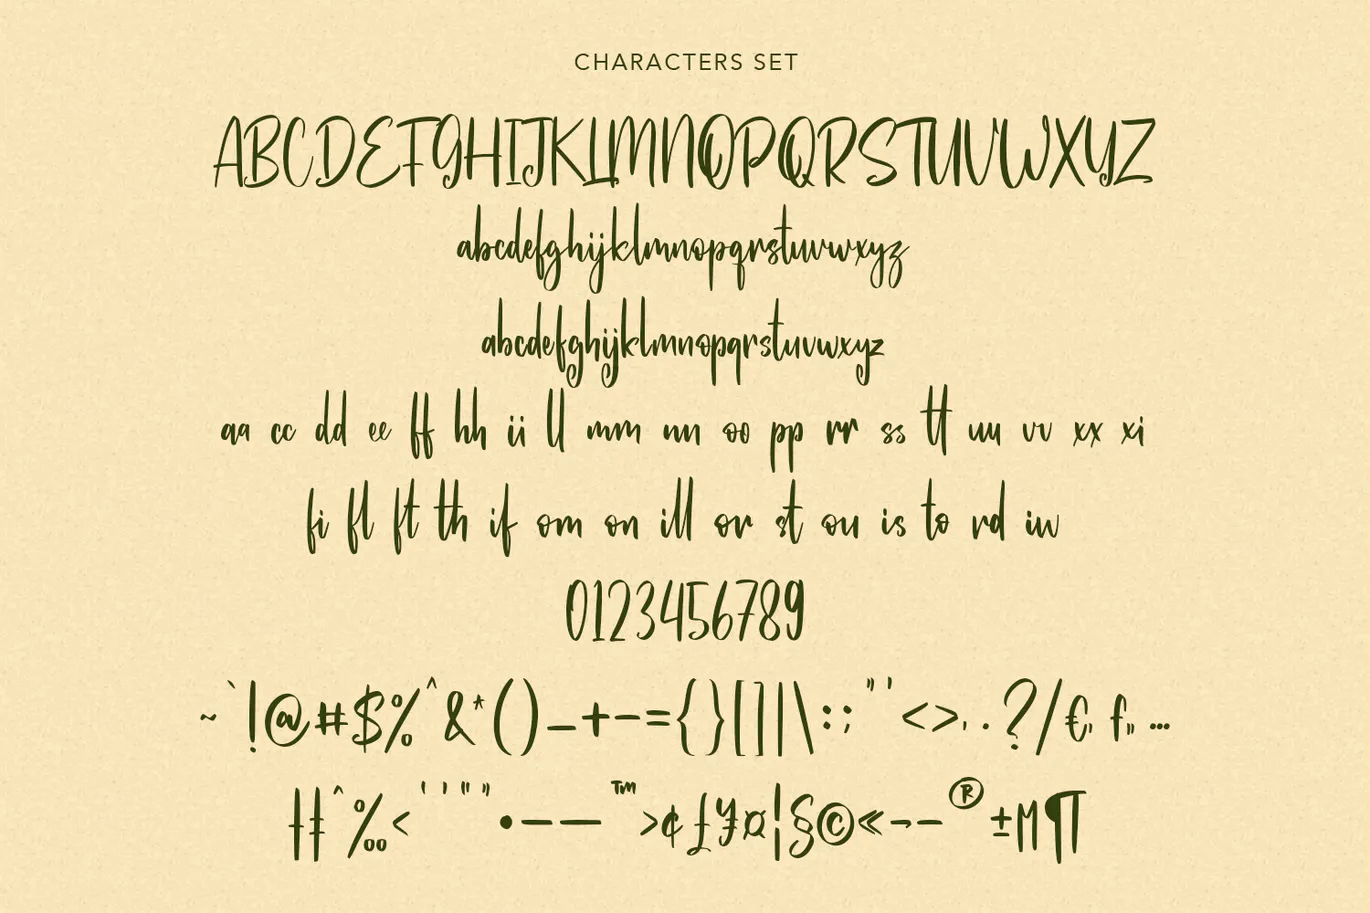 CHARACTERS SET
ABCDEFGHIJKLMNOPQRSTUVWXYZ
abcdefghijklmnopqrstuvwxyz
abcdefghijklmnopqrstuvwxyz
aa cc dd ee ff hh ii ll mm nn oo pp rr ss tt uu vv xx xi
fi fl ft th if om on ill or st ou is to rd iw
0123456789
~`!@#$%^&*()_+-={}[]|\:;"'<>,.?/€‚ƒ„…
†‡ˆ‰‹‘’“”•–—™›¢£¥¤¦§©«¬-®±µ¶